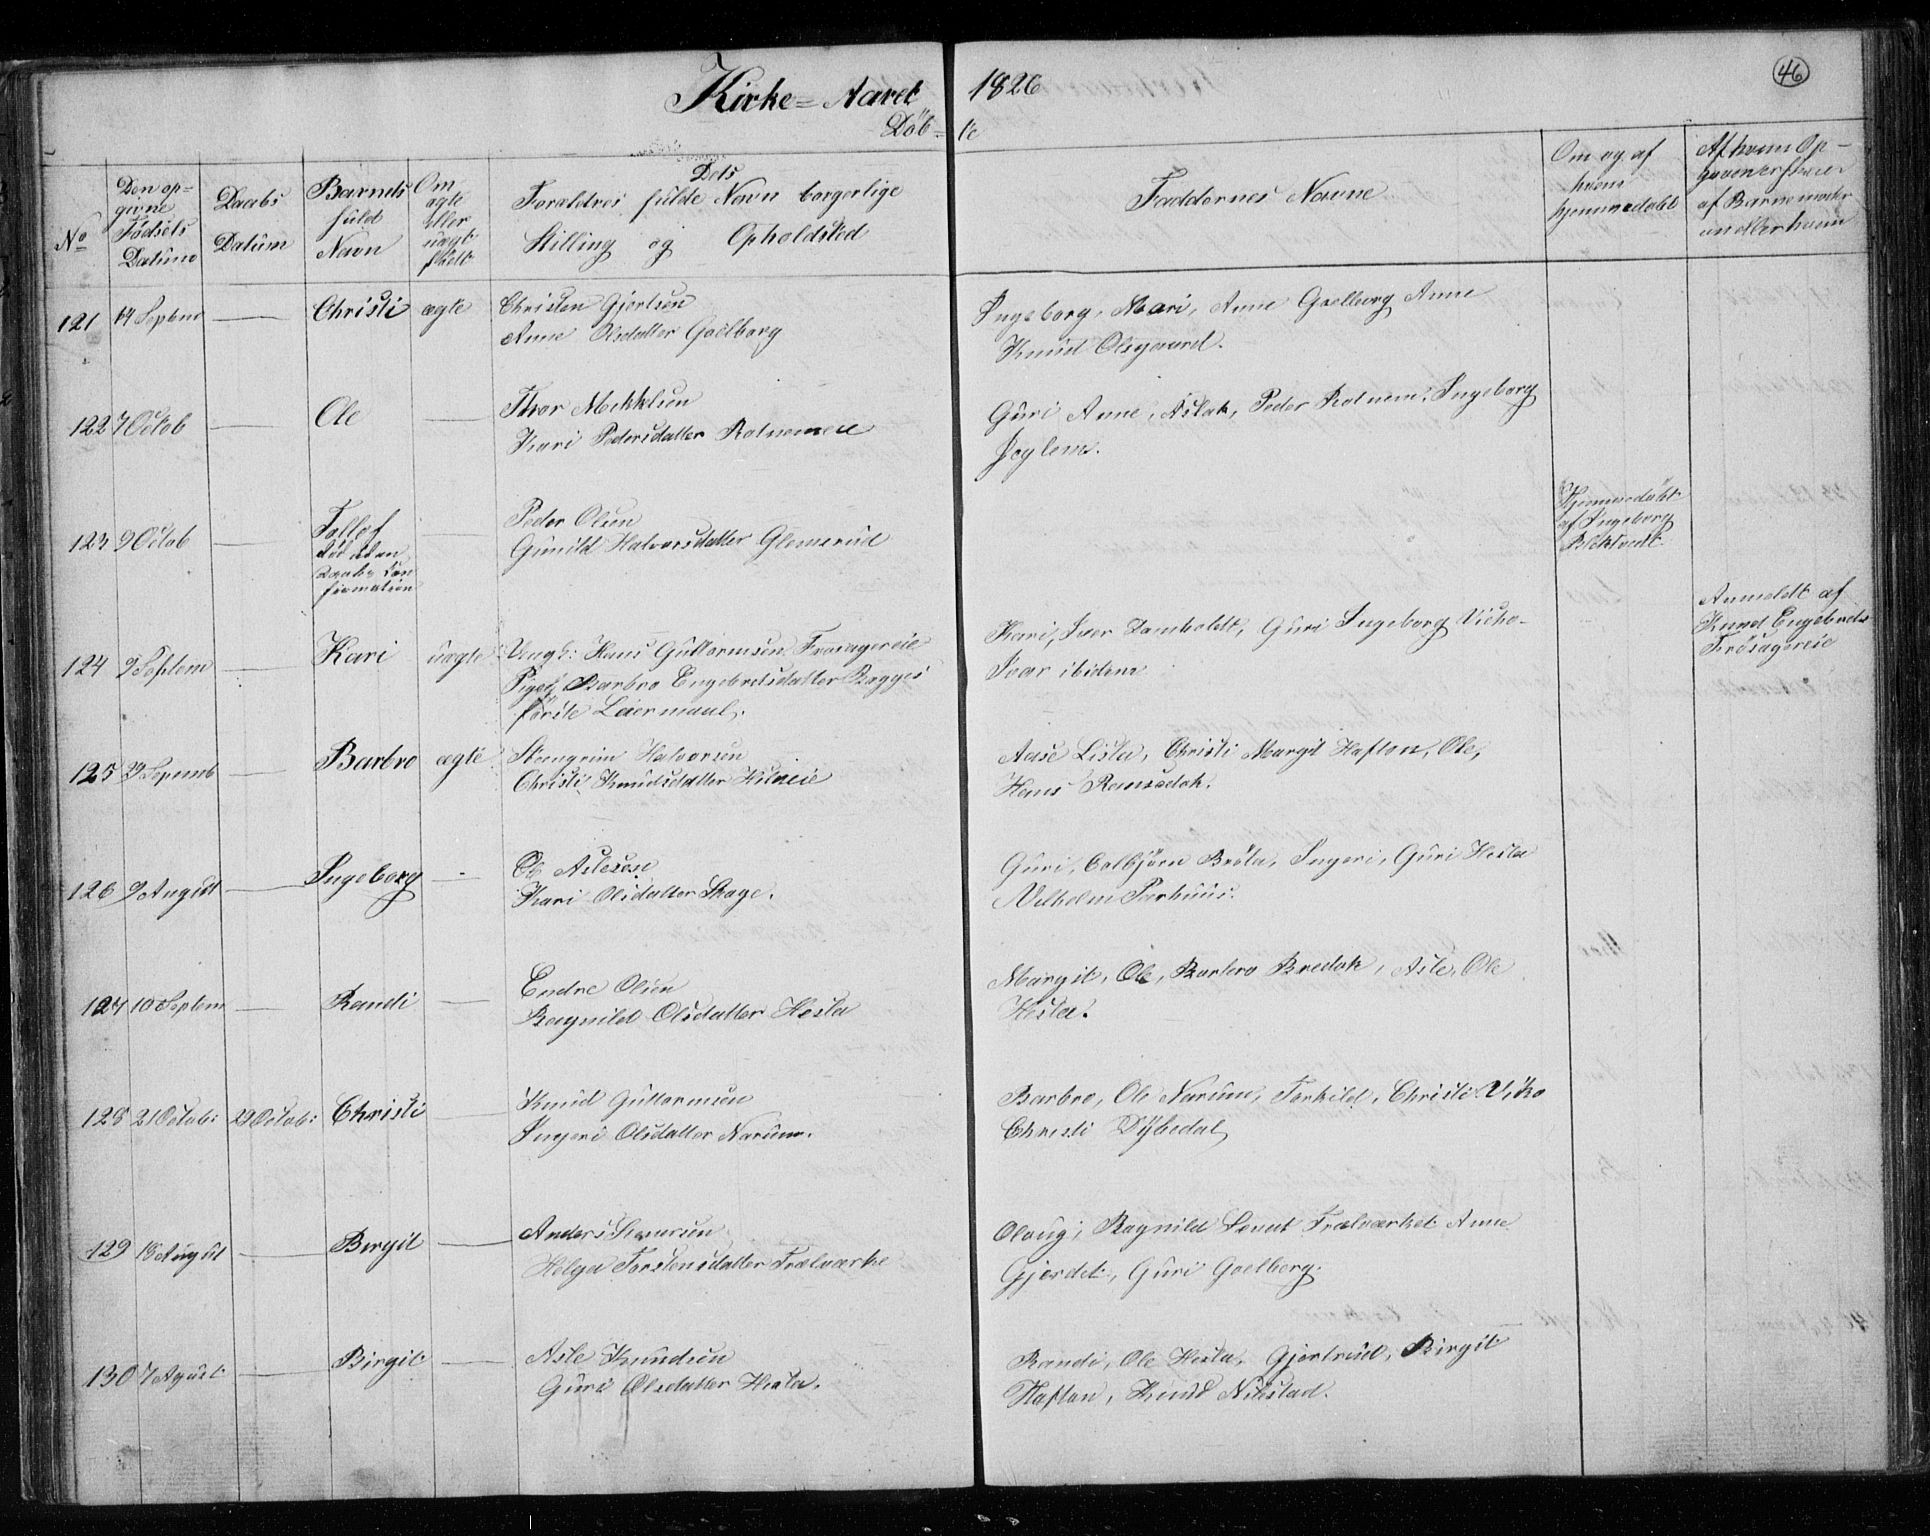 Kirke=Aaret 1826
46
Döb= te
No
Den op=
givne
Födsels
Datum
Daabs
Datum
Barnets
fuld
Navn
Om
ægte
eller
uægte
födt
Dets
Forældres fulde Navn borgerlige
Stilling og Opholdsted
Faddernes Navne
Om og af
hvem
hjemmedöbt
Af hvem Op-
af Barnemoder
121 14 Septem — Christi ægte Christen Gjertsen
Anne Olsdatter Goelborg
Ingeborg, Mari, Anne Goelborg Anne
Knud Olsgaard.
122 7 Octob — Ole — Thor Mekkelsen
Kari Pedersdatter Rotnemeie
Guri Anne, Aslak, Peder Rotnem, Ingeborg
123 9 Octob — Tollef
död uden
Daabs Con
firmation
— Peder Olsen
Gunild Halvorsdatter Glomerud
Hjemmedöbt
af Ingeborg
124 9 Septem — Kari uægte Ungk: Hans Guttormsen Frösagereie
Pigen Barbro Engebretsdatter Bagges
förste Leiermaal.
Kari, Iver Tamholdt, Guri Ingeborg Vicho-
Ivar ibidem
Anmeldt af
Knud Engebrets
Frösagereie
125 29 Septemb — Barbro ægte Steengrim Halvorsen
Christi Knudsdatter Kilneie
Aase Lista, Christi Margit Hafton, Ole,
Hans Ramsedok.
126 9 August — Ingeborg — Ole Aslesen
Kari Olsdatter Hage.
Guri, Colbjörn Bröta, Ingeri, Guri Hesla
Vilhelm Parhuus.
127 10 Septem — Randi — Endre Olsen
Ragnild Olsdatter Hesla
Margit, Ole, Barbro Bredok, Asle, Ole
Hesla.
128 21 Octob: 22 Octob: Christi — Knud Guttormsen
Ingeri Olsdatter Narum.
Barbro, Ole Narum, Torkild, Christi Viko
Christi Dÿbedal
129 18 August — Bergit — Anders Iversen
Helga Torstensdatter Trælværke
Olaug, Ragnild Sevat Trælværket Anne
Gjerdet, Guri Goelberg.
130 7 Agust — Birgit — Asle Knudsen
Guri Olsdatter Hesla.
Randi, Ole Hesla, Gjertrud, Birgit
Haftan, Knud Nilestad.